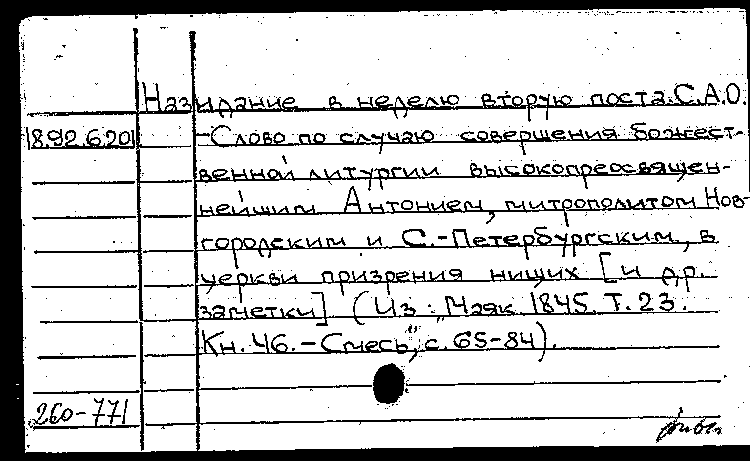 Назидание в неделю вторую поста. С.А.О.
18.92.6.201
-Слово по случаю совершения божест-
венной литургии высокопреосвящен-
нейшим Антонием, митрополитом Нов-
городским и С.-Петербургским, в
церкви призрения нищих [и др.
заметки] (Из: "Маяк 1845. Т. 23.
Кн. 46. - Смесь", с. 65-84).
260-771